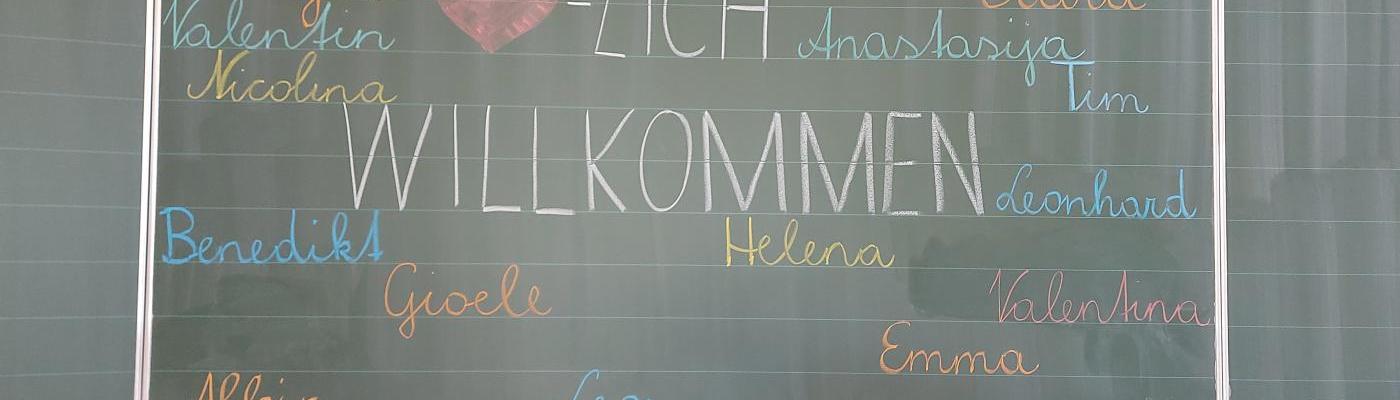 -ZICH
Valentin
Anastasija
Nicolina
Tim
WILLKOMMEN
Leonhard
Benedikt
Helena
Gioele
Valentina
Emma